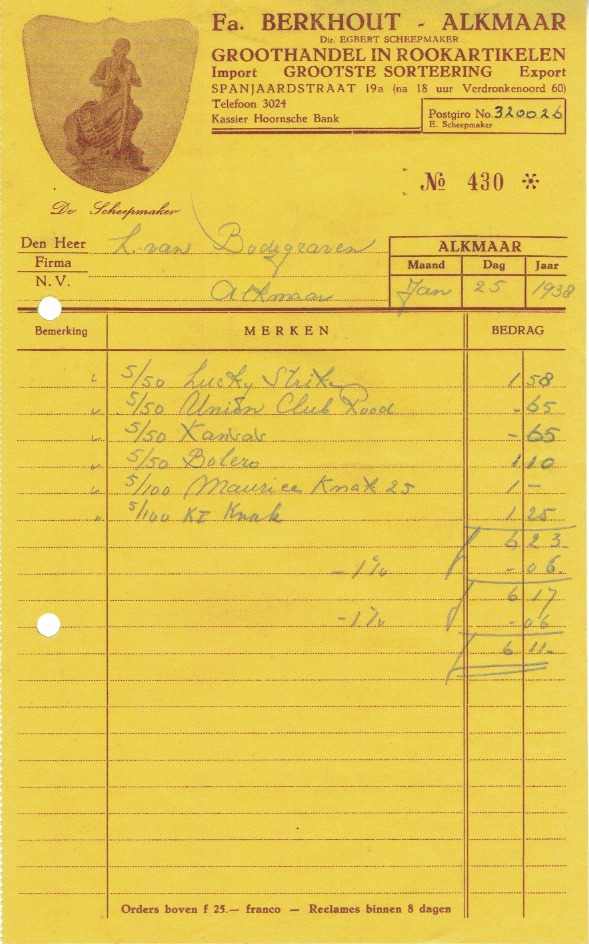 Fa. BERKHOUT - ALKMAAR
Dir. EGBERT SCHEEPMAKER
GROOTHANDEL IN ROOKARTIKELEN
Import GROOTSTE SORTEERING Export
SPANJAARDSTRAAT 19a (na 18 uur Verdronkenoord 60)
Telefoon 3024
Kassier Hoornsche Bank
Postgiro No. 320026
E. Scheepmaker
De Scheepmaker
No 430
Den Heer L. van Bodegraven
Firma
N. V. Alkmaar
ALKMAAR
Maand Dag Jaar
Jan 25 1938
Bemerking MERKEN BEDRAG
5/50 Lucky Strike 1 58
5/50 Union Club Rood - 65
5/50 - 65
5/50 Bolero 1 10
5/100 Maurice Knak 25 1 -
5/100 KI Knak 1 25
6 23
- 1% - 06
6 17
- 1% - 06
6 11-
Orders boven f 25.— franco — Reclames binnen 8 dagen